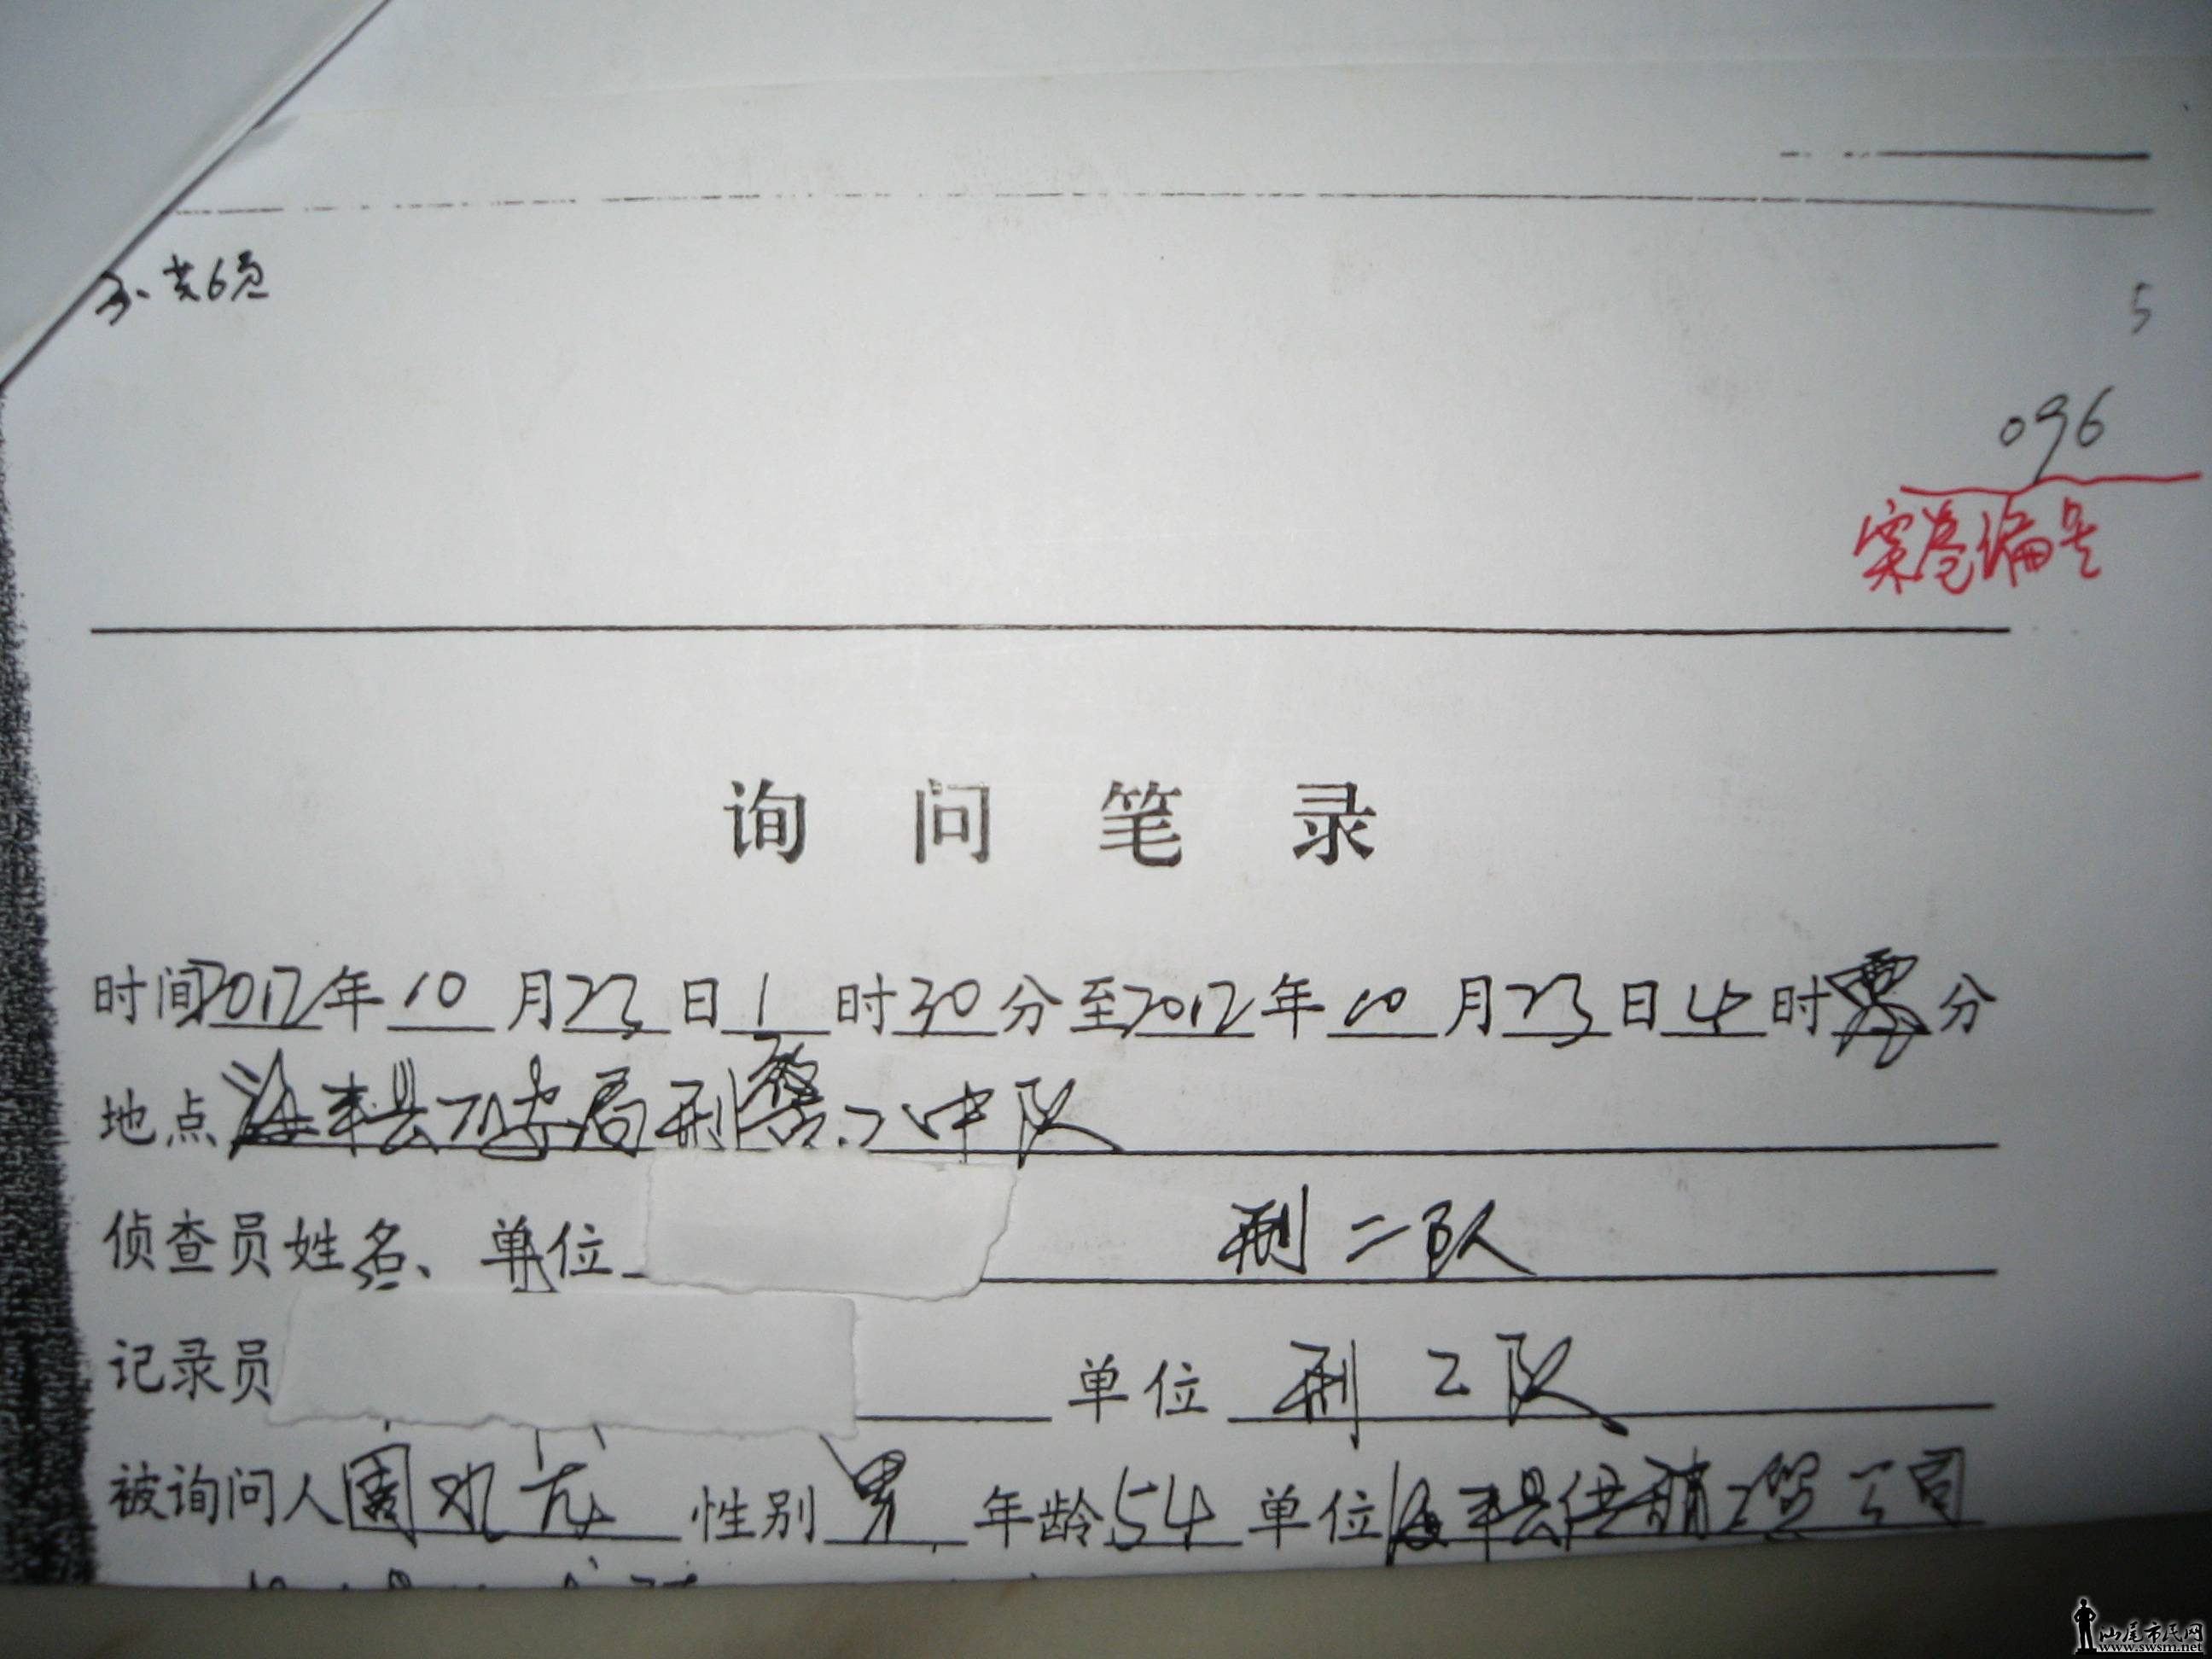 共6页
5
096
案卷编号
询问笔录
时间2012年10月23日1时30分至2012年10月23日4时零分
地点海丰县公安局刑警二中队
侦查员姓名、单位 刑二队
记录员 单位 刑二队
被询问人周 龙 性别男 年龄54 单位海丰县供销 贸公司
汕尾市民网
www.swsm.net